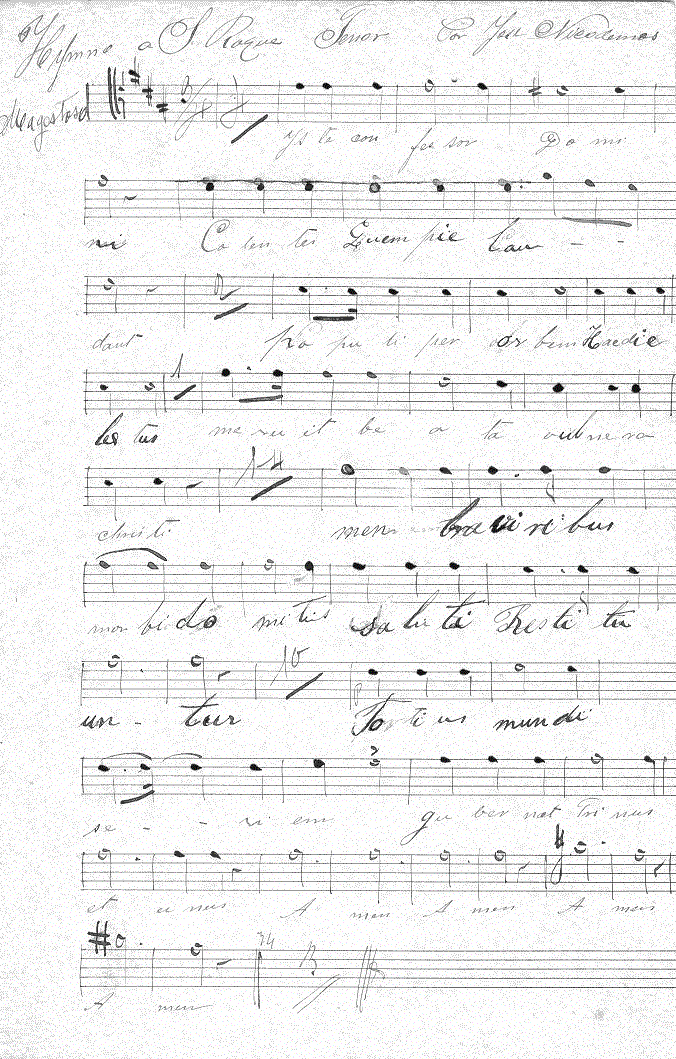 Hymno a S. Roque Tenor Por José Nicodemos
Magestoso
Ys te con fes sor Do mi
ni Co len tes Quem pie lau - -
dant Po pu li per or bem Haedie
le tus me ru it be a ta vulnera
christi men bra vi ri bus
mor bi do mitis sa lu ti Res ti tu
un - tur To ti us mundi
se - - ri em gu ber nat Tri nus
et u nus A men A men A men
A men